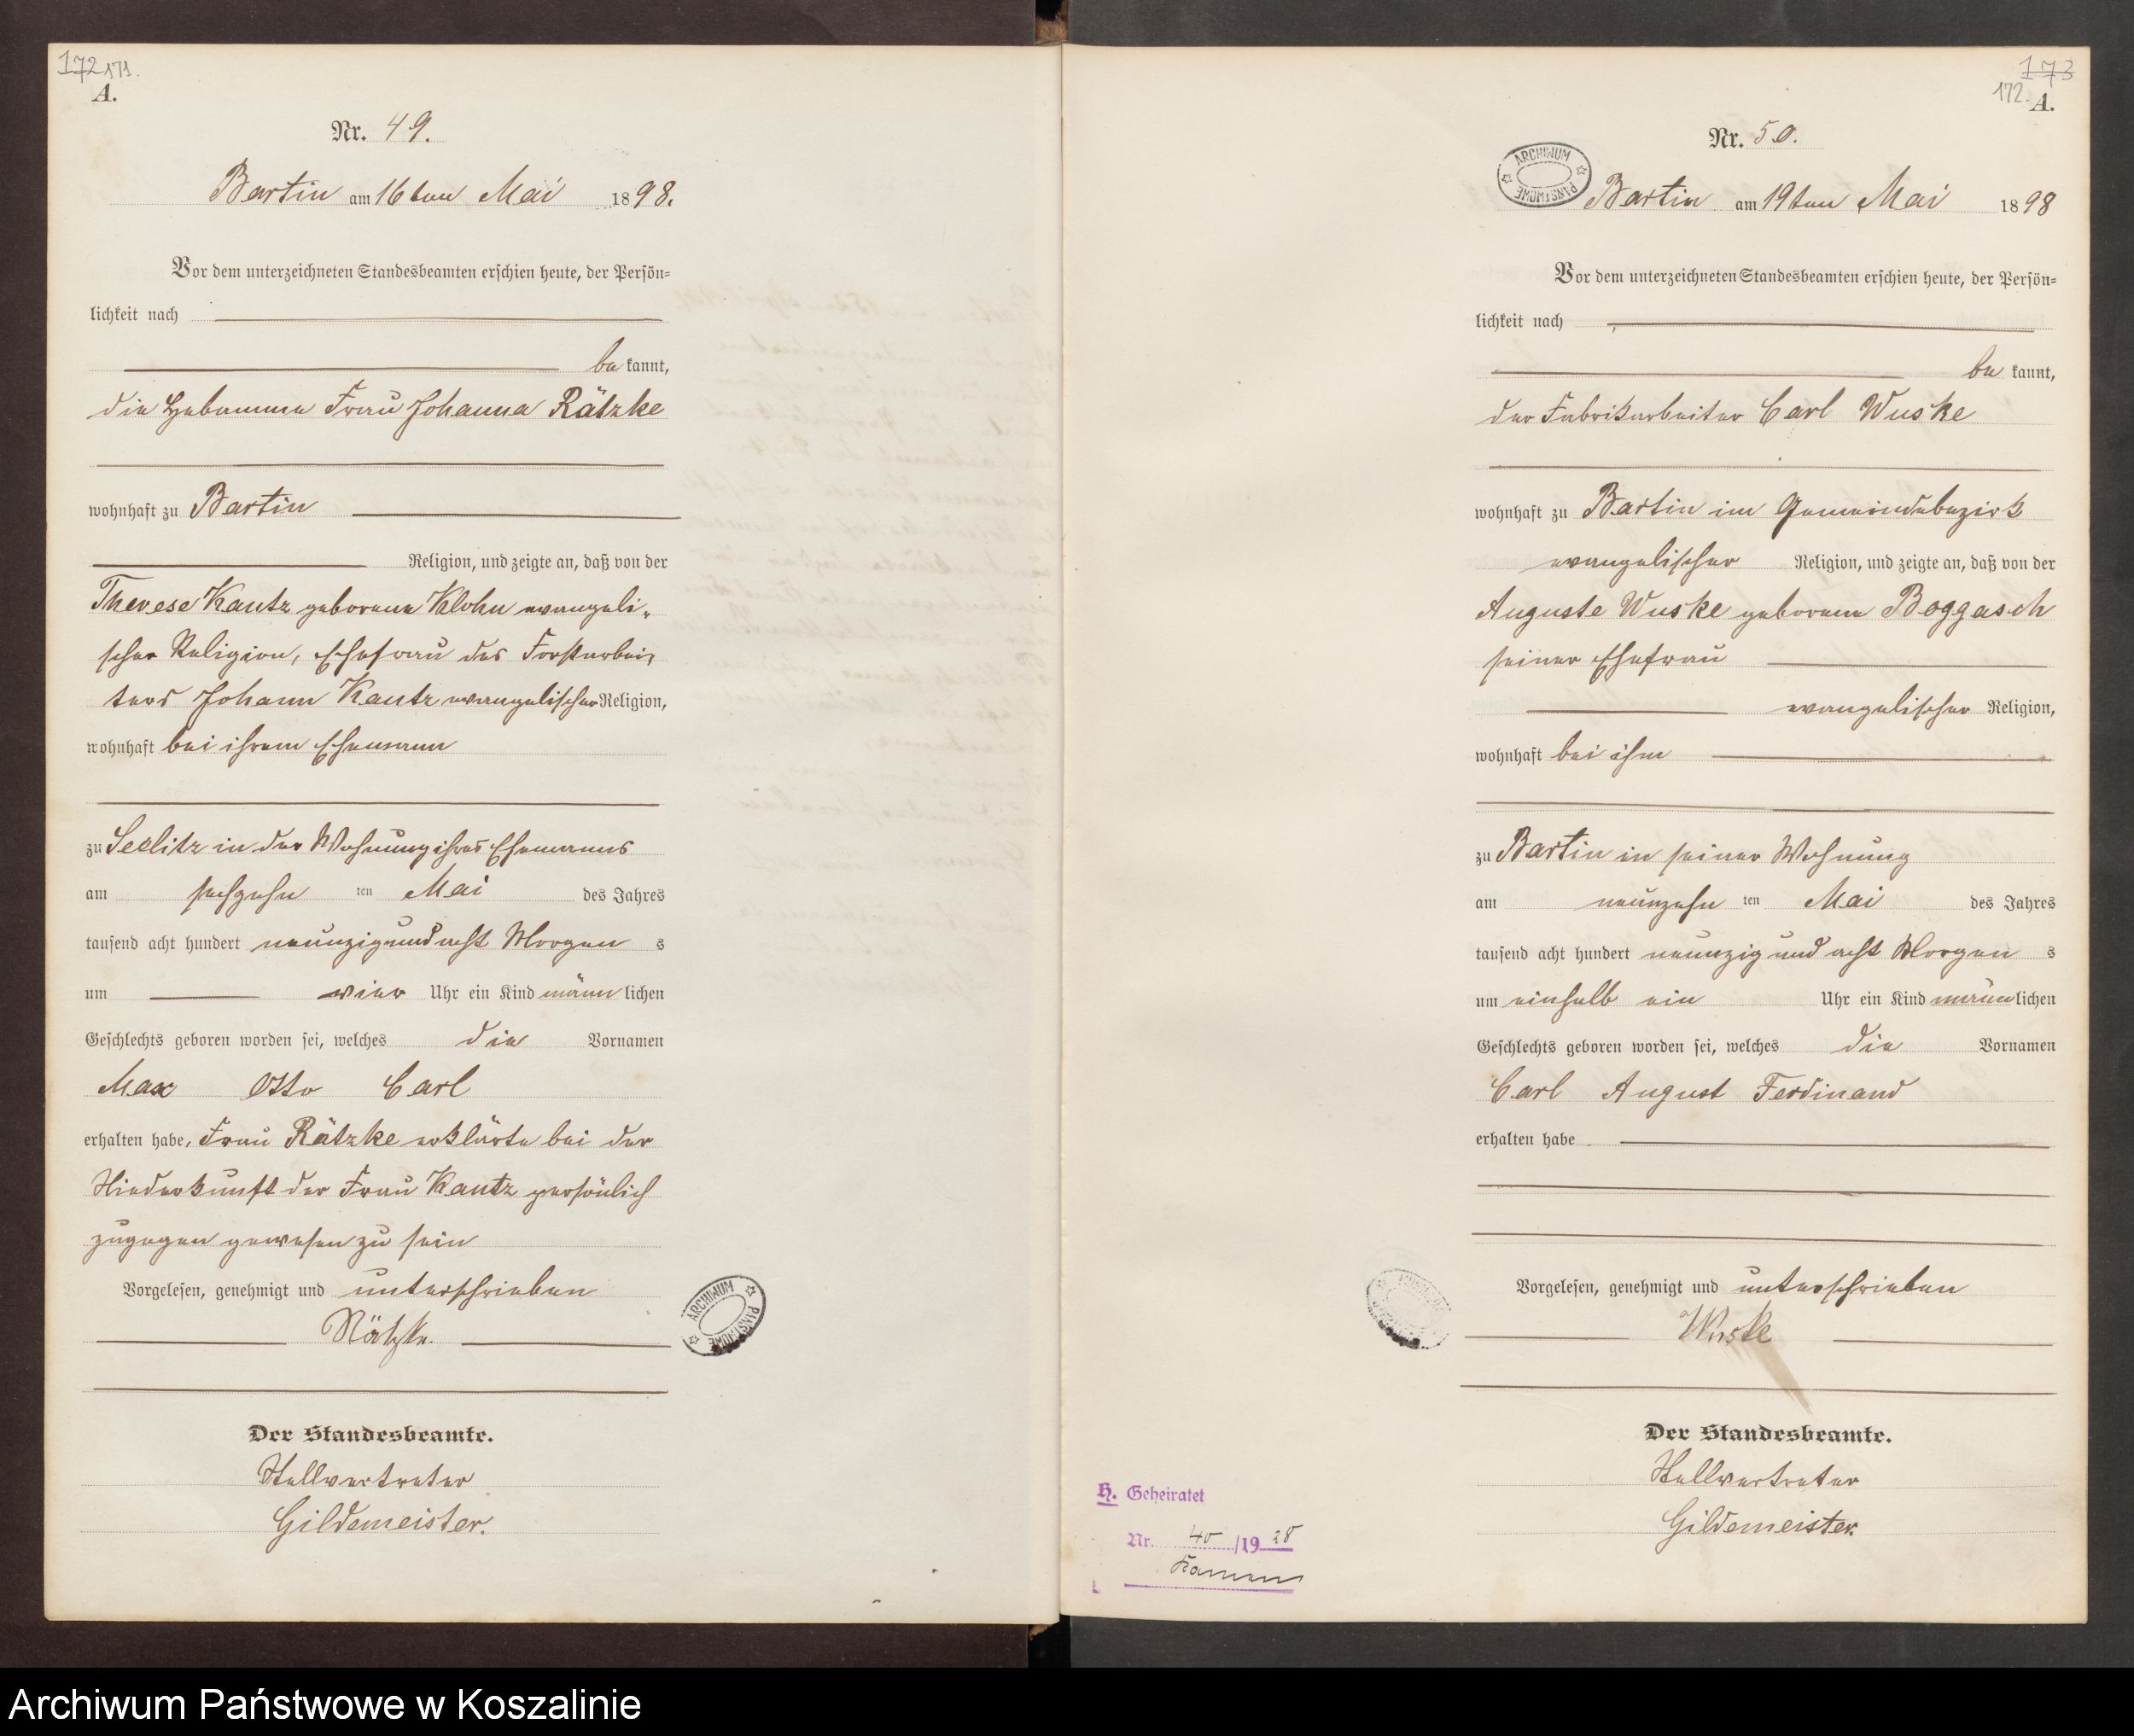 172 171.
A.
Nr. 49.
Bartin am 16ten Mai 1898.
Vor dem unterzeichneten Standesbeamten erschien heute, der Persön=
lichkeit nach
be kannt,
die Hebamme Frau Johanna Rätzke
wohnhaft zu Bartin
Religion, und zeigte an, daß von der
Therese Kautz geborene Klohn evangeli=
scher Religion, Ehefrau des Forstarbei=
ters Johann Kautz evangelischer Religion,
wohnhaft bei ihrem Ehemann
zu Seelitz in der Wohnung ihres Ehemanns
am sechzehn ten Mai des Jahres
tausend acht hundert neunzig und acht Morgen s
um vier Uhr ein Kind männ lichen
Geschlechts geboren worden sei, welches die Vornamen
Max Otto Carl
erhalten habe, Frau Rätzke erklärte bei der
Niederkunft der Frau Kautz persönlich
zugegen gewesen zu sein
Vorgelesen, genehmigt und unterschrieben
Rätzke.
ARCHIWUM PAŃSTWOWE
Der Standesbeamte.
Stellvertreter
Gildemeister.
173
172. A.
Nr. 50.
ARCHIWUM PAŃSTWOWE
Bartin am 19ten Mai 1898
Vor dem unterzeichneten Standesbeamten erschien heute, der Persön=
lichkeit nach
be kannt,
der Fabrikarbeiter Carl Wuske
wohnhaft zu Bartin im Gemeindebezirk
evangelischer Religion, und zeigte an, daß von der
Auguste Wuske geborene Boggasch
seiner Ehefrau
evangelischer Religion,
wohnhaft bei ihm
zu Bartin in seiner Wohnung
am neunzehn ten Mai des Jahres
tausend acht hundert neunzig und acht Morgen s
um einhalb ein Uhr ein Kind männ lichen
Geschlechts geboren worden sei, welches die Vornamen
Carl August Ferdinand
erhalten habe
Vorgelesen, genehmigt und unterschrieben
Wuske
Der Standesbeamte.
Stellvertreter
Gildemeister.
H. Geheiratet
Nr. 40 /19 28
Archiwum Państwowe w Koszalinie